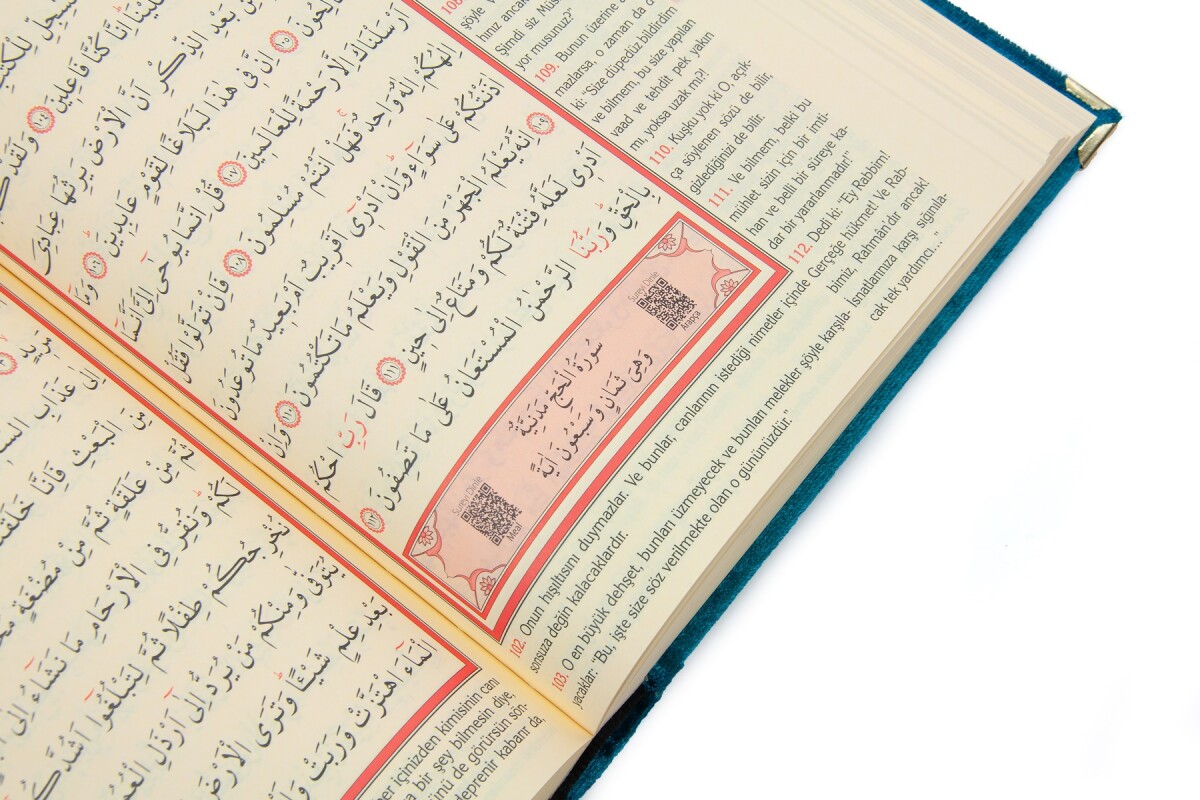 السِّجِلِّ لِلْكُتُبِ
عَلَيْنَا اِنَّا كُنَّا فَاعِلِينَ ١٠٤ وَلَقَدْ
مِنْ بَعْدِ الذِّكْرِ اَنَّ الْاَرْضَ يَرِثُهَا عِبَادِىَ
١٠٥ اِنَّ فِى هٰذَا لَبَلَاغًا لِقَوْمٍ عَابِدِينَ ١٠٦ وَمَٓا
اَرْسَلْنَاكَ اِلَّا رَحْمَةً لِلْعَالَمِينَ ١٠٧ قُلْ اِنَّمَا يُوحٰٓى اِلَىَّ اَنَّمَٓا
اِلٰهُكُمْ اِلٰهٌ وَاحِدٌ فَهَلْ اَنْتُمْ مُسْلِمُونَ ١٠٨ فَاِنْ تَوَلَّوْا فَقُلْ
اٰذَنْتُكُمْ عَلٰى سَوَٓاءٍ وَاِنْ اَدْرِٓى اَقَرِيبٌ اَمْ بَعِيدٌ مَا تُوعَدُونَ
١٠٩ اِنَّهُ يَعْلَمُ الْجَهْرَ مِنَ الْقَوْلِ وَيَعْلَمُ مَا تَكْتُمُونَ ١١٠ وَاِنْ
اَدْرِى لَعَلَّهُ فِتْنَةٌ لَكُمْ وَمَتَاعٌ اِلٰى حِينٍ ١١١ قَالَ رَبِّ احْكُمْ
بِالْحَقِّ وَرَبُّنَا الرَّحْمٰنُ الْمُسْتَعَانُ عَلٰى مَا تَصِفُونَ ١١٢
Sureyi Dinle
Arapça
سُورَةُ الْحَجِّ مَدَنِيَّةٌ
وَهِىَ ثَمَانٍ وَسَبْعُونَ اٰيَةً
Sureyi Dinle
Meal
108
şöyle
hınız ancak
Şimdi siz Müs
yor musunuz?"
109. Bunun üzerine
mazlarsa, o zaman da d
ki: "Size düpedüz bildirdim
ve bilmem, bu size yapılan
vaad ve tehdit pek yakın
mı, yoksa uzak mı?!
110. Kuşku yok ki O, açık-
ça söylenen sözü de bilir,
gizlediğinizi de bilir.
111. Ve bilmem, belki bu
mühlet sizin için bir imti-
han ve belli bir süreye ka-
dar bir yararlanmadır!"
112. Dedi ki: "Ey Rabbim!
Gerçeğe hükmet! Ve Rab-
bimiz, Rahmân'dır ancak!
İsnatlarınıza karşı sığınıla-
cak tek yardımcı..."
102. Onun hışıltısını duymazlar. Ve bunlar, canlarının istediği nimetler içinde
sonsuza değin kalacaklardır.
103. O en büyük dehşet, bunları üzmeyecek ve bunları melekler şöyle karşıla-
yacaklar: "Bu, işte size söz verilmekte olan o gününüzdür."
مِنَ الْبَعْثِ فَاِنَّا
ثُمَّ مِنْ عَلَقَةٍ ثُمَّ مِنْ مُضْغَةٍ
لَكُمْ وَنُقِرُّ فِى الْاَرْحَامِ مَا نَشَٓاءُ اِلٰٓى
نُخْرِجُكُمْ طِفْلًا ثُمَّ لِتَبْلُغُٓوا اَشُدَّكُمْ
يُتَوَفّٰى وَمِنْكُمْ مَنْ يُرَدُّ اِلٰٓى اَرْذَلِ
بَعْدِ عِلْمٍ شَيْـًٔا وَتَرَى الْاَرْضَ
الْمَٓاءَ اهْتَزَّتْ وَرَبَتْ
içinizden kimisinin canı
bir şey bilmesin diye,
de görürsün sön-
deprenir kabarır da,